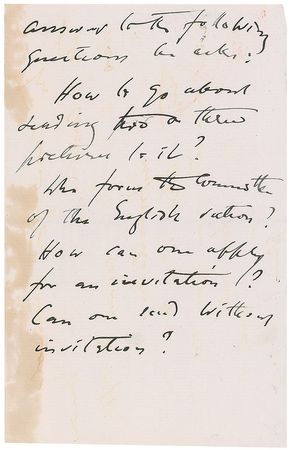 answer to the following
questions he asks:
How to go about
sending two or three
pictures to it?
Who forms the Committee
of the English section?
How can one apply
for an invitation?
Can one send without
invitation?